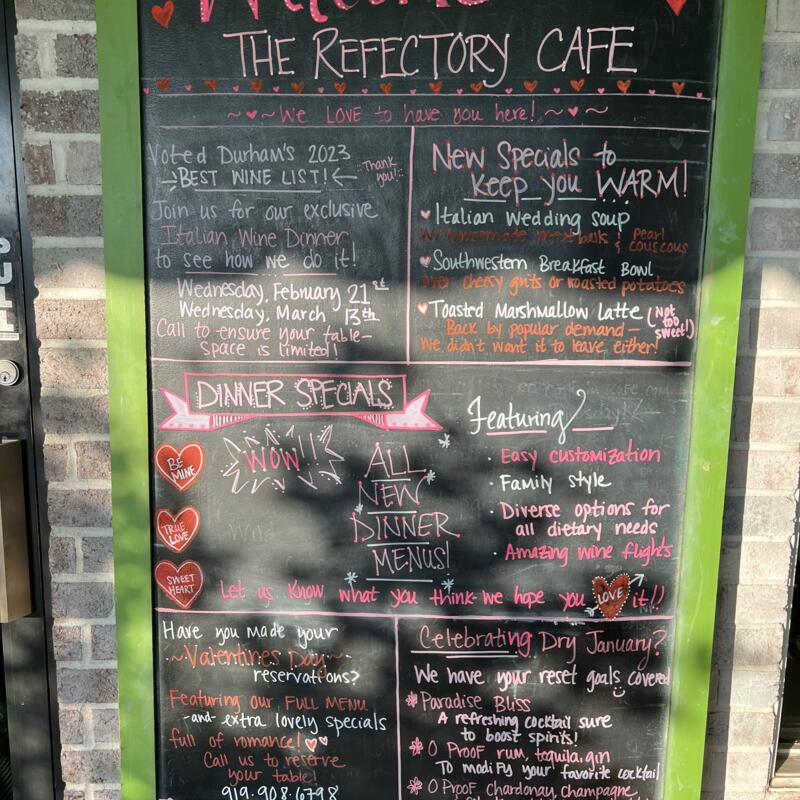 Welcome
THE REFECTORY CAFE
~♥~ We LOVE to have you here! ~♥~
Voted Durham's 2023
→BEST WINE LIST!←
::Thank you!::
Join us for our exclusive
Italian Wine Dinner
to see how we do it!
Wednesday, February 21st
Wednesday, March 13th
Call to ensure your table-
space is limited!
New Specials to
Keep you WARM!
♥ Italian Wedding Soup
w/ homemade meatballs & Pearl
couscous
♥ Southwestern Breakfast Bowl
over cheesy grits or roasted potatoes
♥ Toasted Marshmallow Latte (Not too sweet!)
Back by popular demand—
We didn't want it to leave either!
DINNER SPECIALS
BE MINE
TRUE LOVE
SWEET HEART
WOW!!
ALL
NEW
DINNER
MENUS!
Featuring
· Easy customization
· Family style
· Diverse options for
all dietary needs
· Amazing wine flights
Let us know what you think-we hope you LOVE it!!
Have you made your
~Valentines Day~
reservations?
Featuring our FULL MENU
-and- extra lovely specials
full of romance!
Call us to reserve
your table!
919.908.6798
Celebrating Dry January?
We have your reset goals covered
* Paradise Bliss
A refreshing cocktail sure
to boost spirits!
* 0 Proof rum, tequila, gin
To modify your favorite cocktail
* 0 Proof chardonay, champagne,
PULL